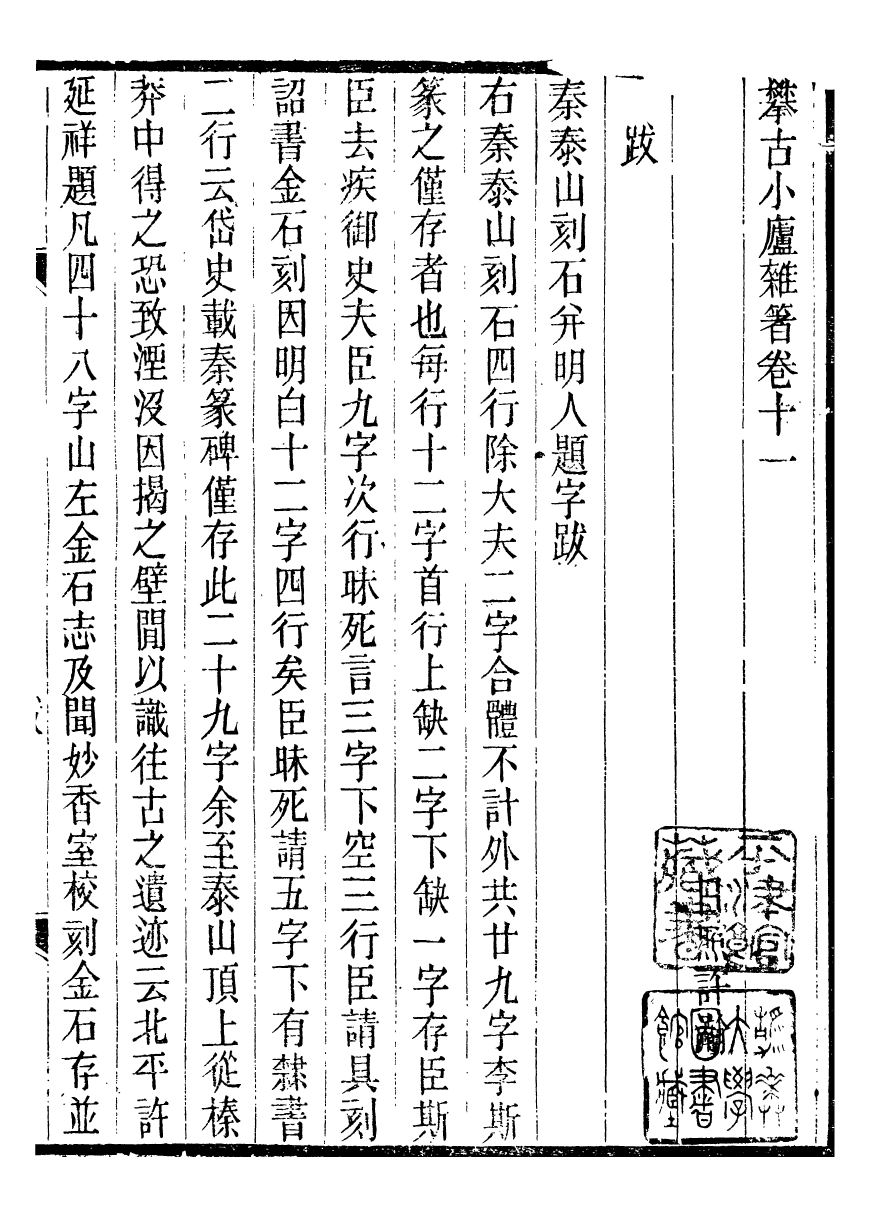 攀古小廬雜著卷十一
日照許瀚
跋
秦泰山刻石并明人題字跋
右秦泰山刻石四行除大夫二字合體不計外共廿九字李斯
篆之僅存者也每行十二字首行上缺二字下缺一字存臣斯
臣去疾御史夫臣九字次行昧死言三字下空三行臣請具刻
詔書金石刻因明白十二字四行矣臣昧死請五字下有隸書
二行云岱史載秦篆碑僅存此二十九字余至泰山頂上從榛
莽中得之恐致湮沒因揭之壁閒以識往古之遺迹云北平許
延祥題凡四十八字山左金石志及聞妙香室校刻金石存並
大學
圖書
館藏